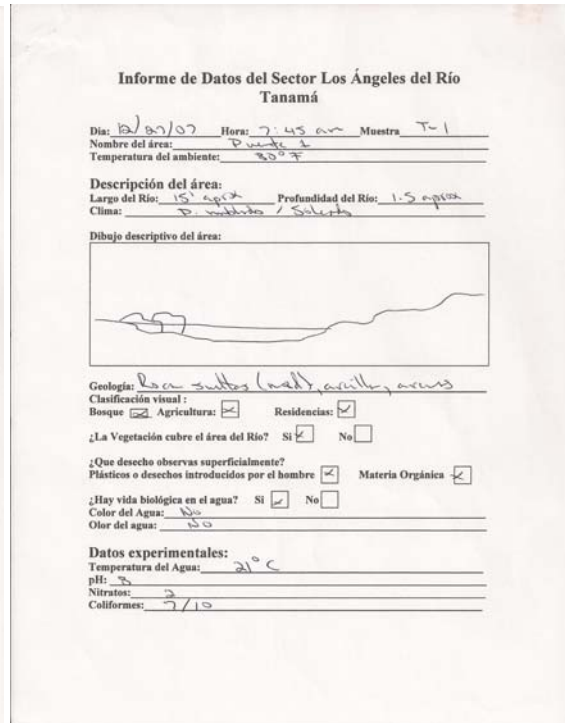 Informe de Datos del Sector Los Ángeles del Río
Tanamá
Dia: 12/27/07 Hora: 7:45 am Muestra T-1
Nombre del área: Puente 1
Temperatura del ambiente: 80° F
Descripción del área:
Largo del Río: 15' aprox Profundidad del Río: 1.5 aprox
Clima: P. nublado / Soleado
Dibujo descriptivo del área:
Geología: Roca sueltas (med), arcilla, arenas
Clasificación visual :
Bosque Agricultura: Residencias:
¿La Vegetación cubre el área del Río? Si No
¿Que desecho observas superficialmente?
Plásticos o desechos introducidos por el hombre Materia Orgánica
¿Hay vida biológica en el agua? Si No
Color del Agua: No
Olor del agua: NO
Datos experimentales:
Temperatura del Agua: 21° C
pH: 8
Nitratos: 2
Coliformes: 7/10